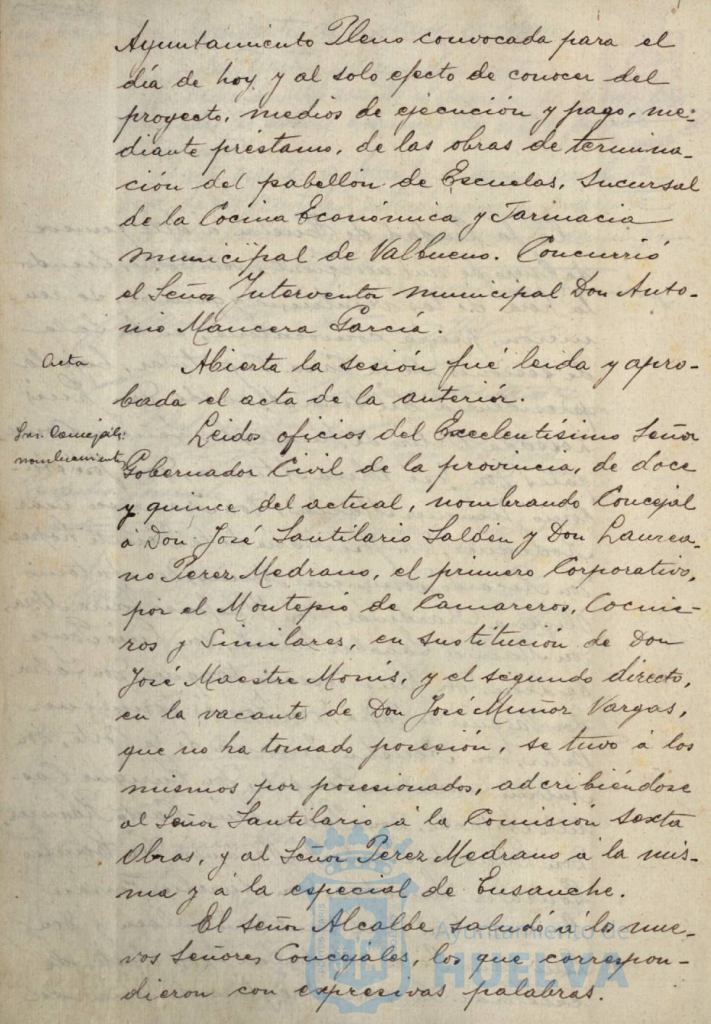 Ayuntamiento Pleno convocada para el
día de hoy y al solo efecto de conocer del
proyecto, medios de ejecución y pago, me-
diante préstamo, de las obras de termina-
ción del pabellón de Escuelas, Sucursal
de la Cocina Económica y Farmacia
municipal de Valbueno. Concurrió
el Señor Interventor municipal Don Anto-
nio Mancera García.
Acta
Abierta la sesión fué leida y apro-
bada el acta de la anterior.
Sres. Concejales:
nombramiento
Leidos oficios del Excelentísimo Señor
Gobernador Civil de la provincia, de doce
y quince del actual, nombrando Concejal
á Don José Santilario Saldén y Don Laurea-
no Perez Medrano, el primero Corporativo,
por el Montepío de Camareros, Cocine-
ros y Similares, en sustitución de Don
José Maestre Monís, y el segundo directo,
en la vacante de Don José Muñoz Vargas,
que no ha tomado posesión, se tuvo á los
mismos por posesionados, adcribiéndose
al Señor Santilario á la Comisión Sexta
Obras, y al Señor Perez Medrano á la mis-
ma y á la especial de Ensanche.
El señor Alcalde saludó á lo nue-
vos Señores Concejales, los que correspon-
dieron con expresivas palabras.
Ayuntamiento de
HUELVA